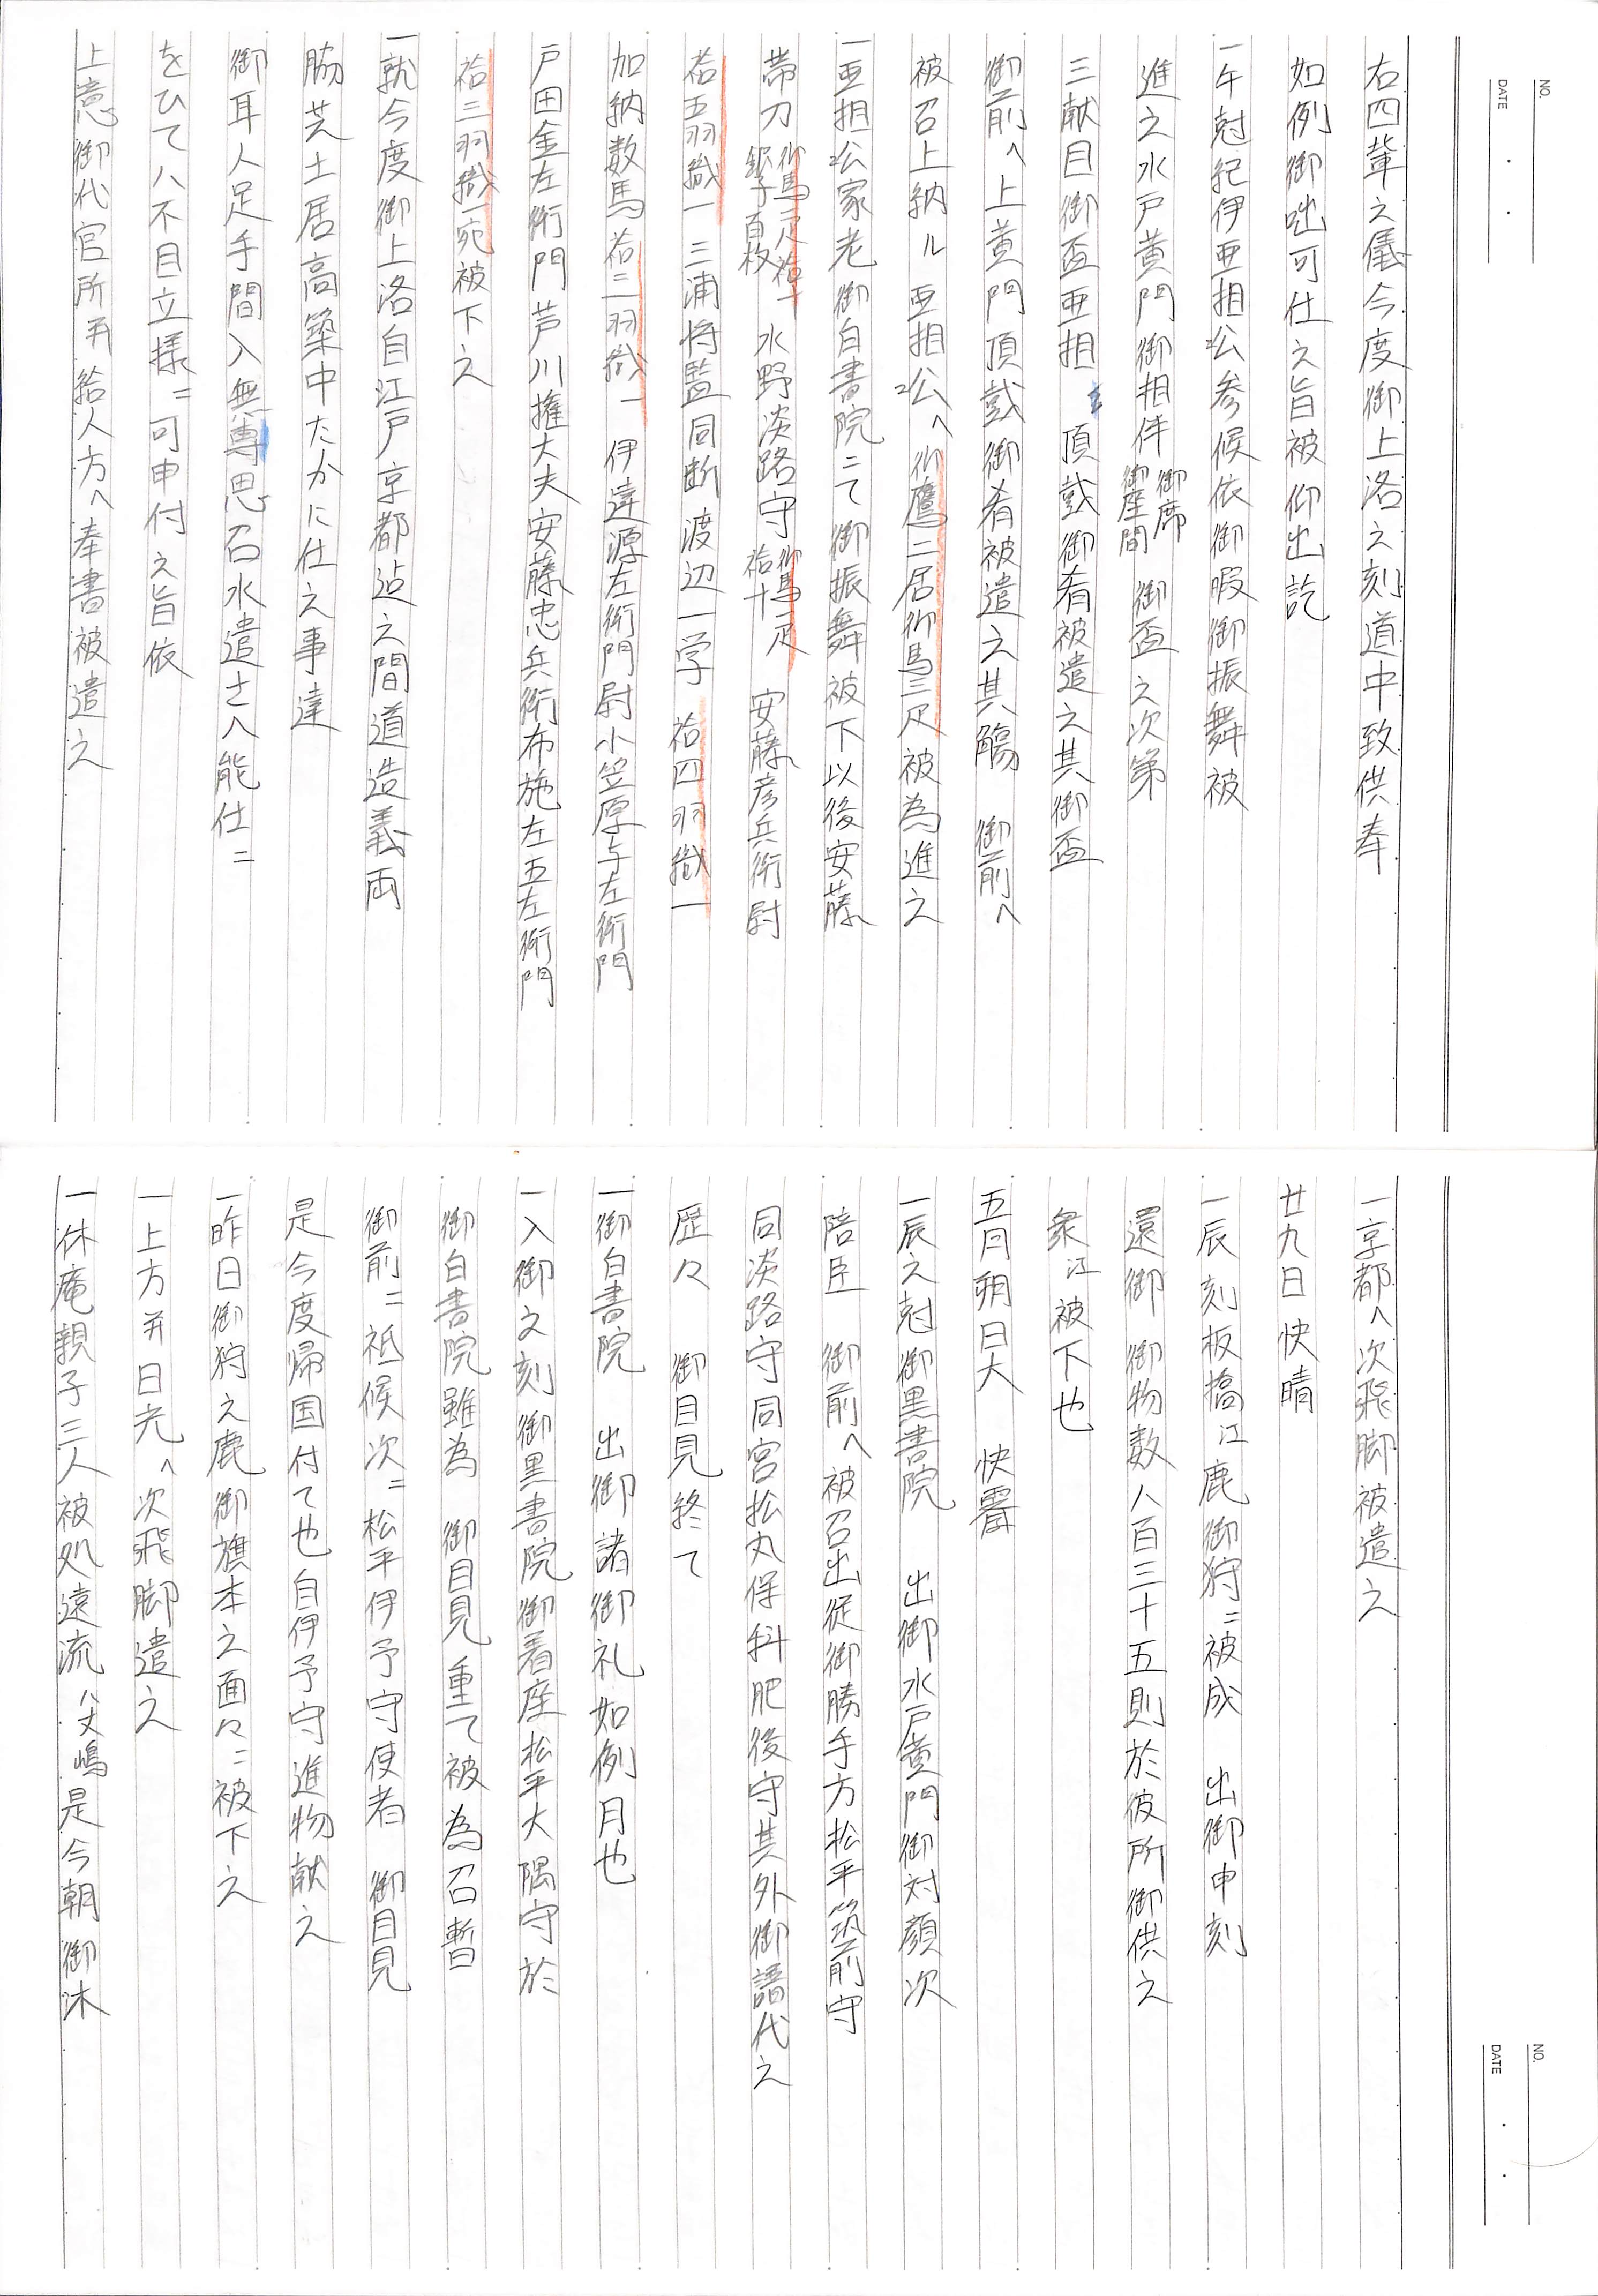 NO.
DATE
右四輩之儀今度御上洛之刻道中致供奉
如例御咄可仕之旨被仰出訖
一午尅紀伊亜相公参候依御暇御振舞被
進之水戸黄門御相伴御席御座間 御盃之次第
三献目御盃亜相 頂戴御肴被遣之其御盃
御前へ上黄門頂戴御肴被遣之其觴 御前へ
被召上納ル 亜相公へ御鷹二居御馬三疋被為進之
一亜相公家老御白書院ニて御振舞被下以後安藤
帯刀 御馬一疋袷十銀子百枚 水野淡路守 御馬一疋袷十 安藤彦兵衛尉
袷五羽織一 三浦将監同断渡辺一学 袷四羽織一
加納数馬袷二羽織一 伊達源左衛門尉小笠原与左衛門
戸田金左衛門芦川権大夫安藤忠兵衛布施左五左衛門
袷二羽織一宛被下之
一就今度御上洛自江戸京都迠之間道造義両
脇芝土居高築中たかに仕之事達
御耳人足手間入無専思召水遣さへ能仕ニ
をひてハ不目立様ニ可申付之旨依
上意御代官所并給人方へ奉書被遣之
一京都へ次飛脚被遣之
廿九日快晴
一辰刻板橋江鹿御狩ニ被成 出御申刻
還御 御物数八百三十五則於彼所御供之
衆江被下也
五月朔日大 快霽
一辰之尅御黒書院 出御水戸黄門御対顔次
陪臣 御前へ被召出従御勝手方松平筑前守
同淡路守同宮松丸保科肥後守其外御譜代之
歴々 御目見終て
一御白書院 出御諸御礼如例月也
一入御之刻御黒書院御着座松平大隅守於
御白書院雖為 御目見重て被為召暫
御前ニ祗候次ニ松平伊予守使者 御目見
是今度帰国付て也自伊予守進物献之
一昨日御狩之鹿御旗本之面々ニ被下之
一上方并日光へ次飛脚遣之
一休庵親子三人被処遠流八丈嶋是今朝御沐
NO.
DATE